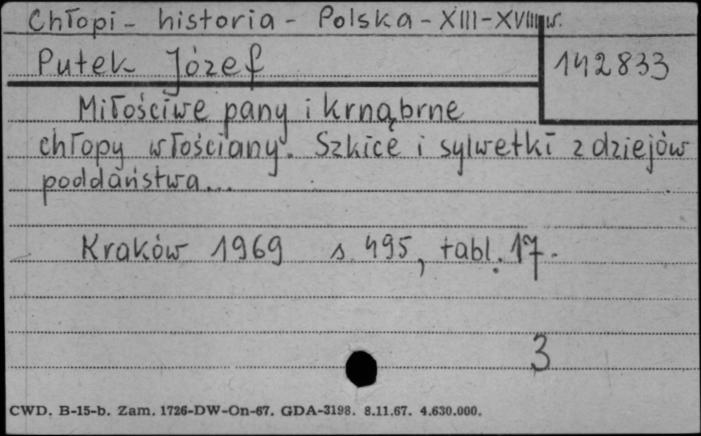 Chłopi - historia - Polska - XIII-XVIII w.
Putek Józef
142833
Miłościwe pany i krnąbrne
chłopy włościany. Szkice i sylwetki z dziejów
poddaństwa...
Kraków 1969 s. 495, tabl. 17.
3
CWD. B-15-b. Zam. 1726-DW-On-67. GDA-3198. 8.11.67. 4.630.000.